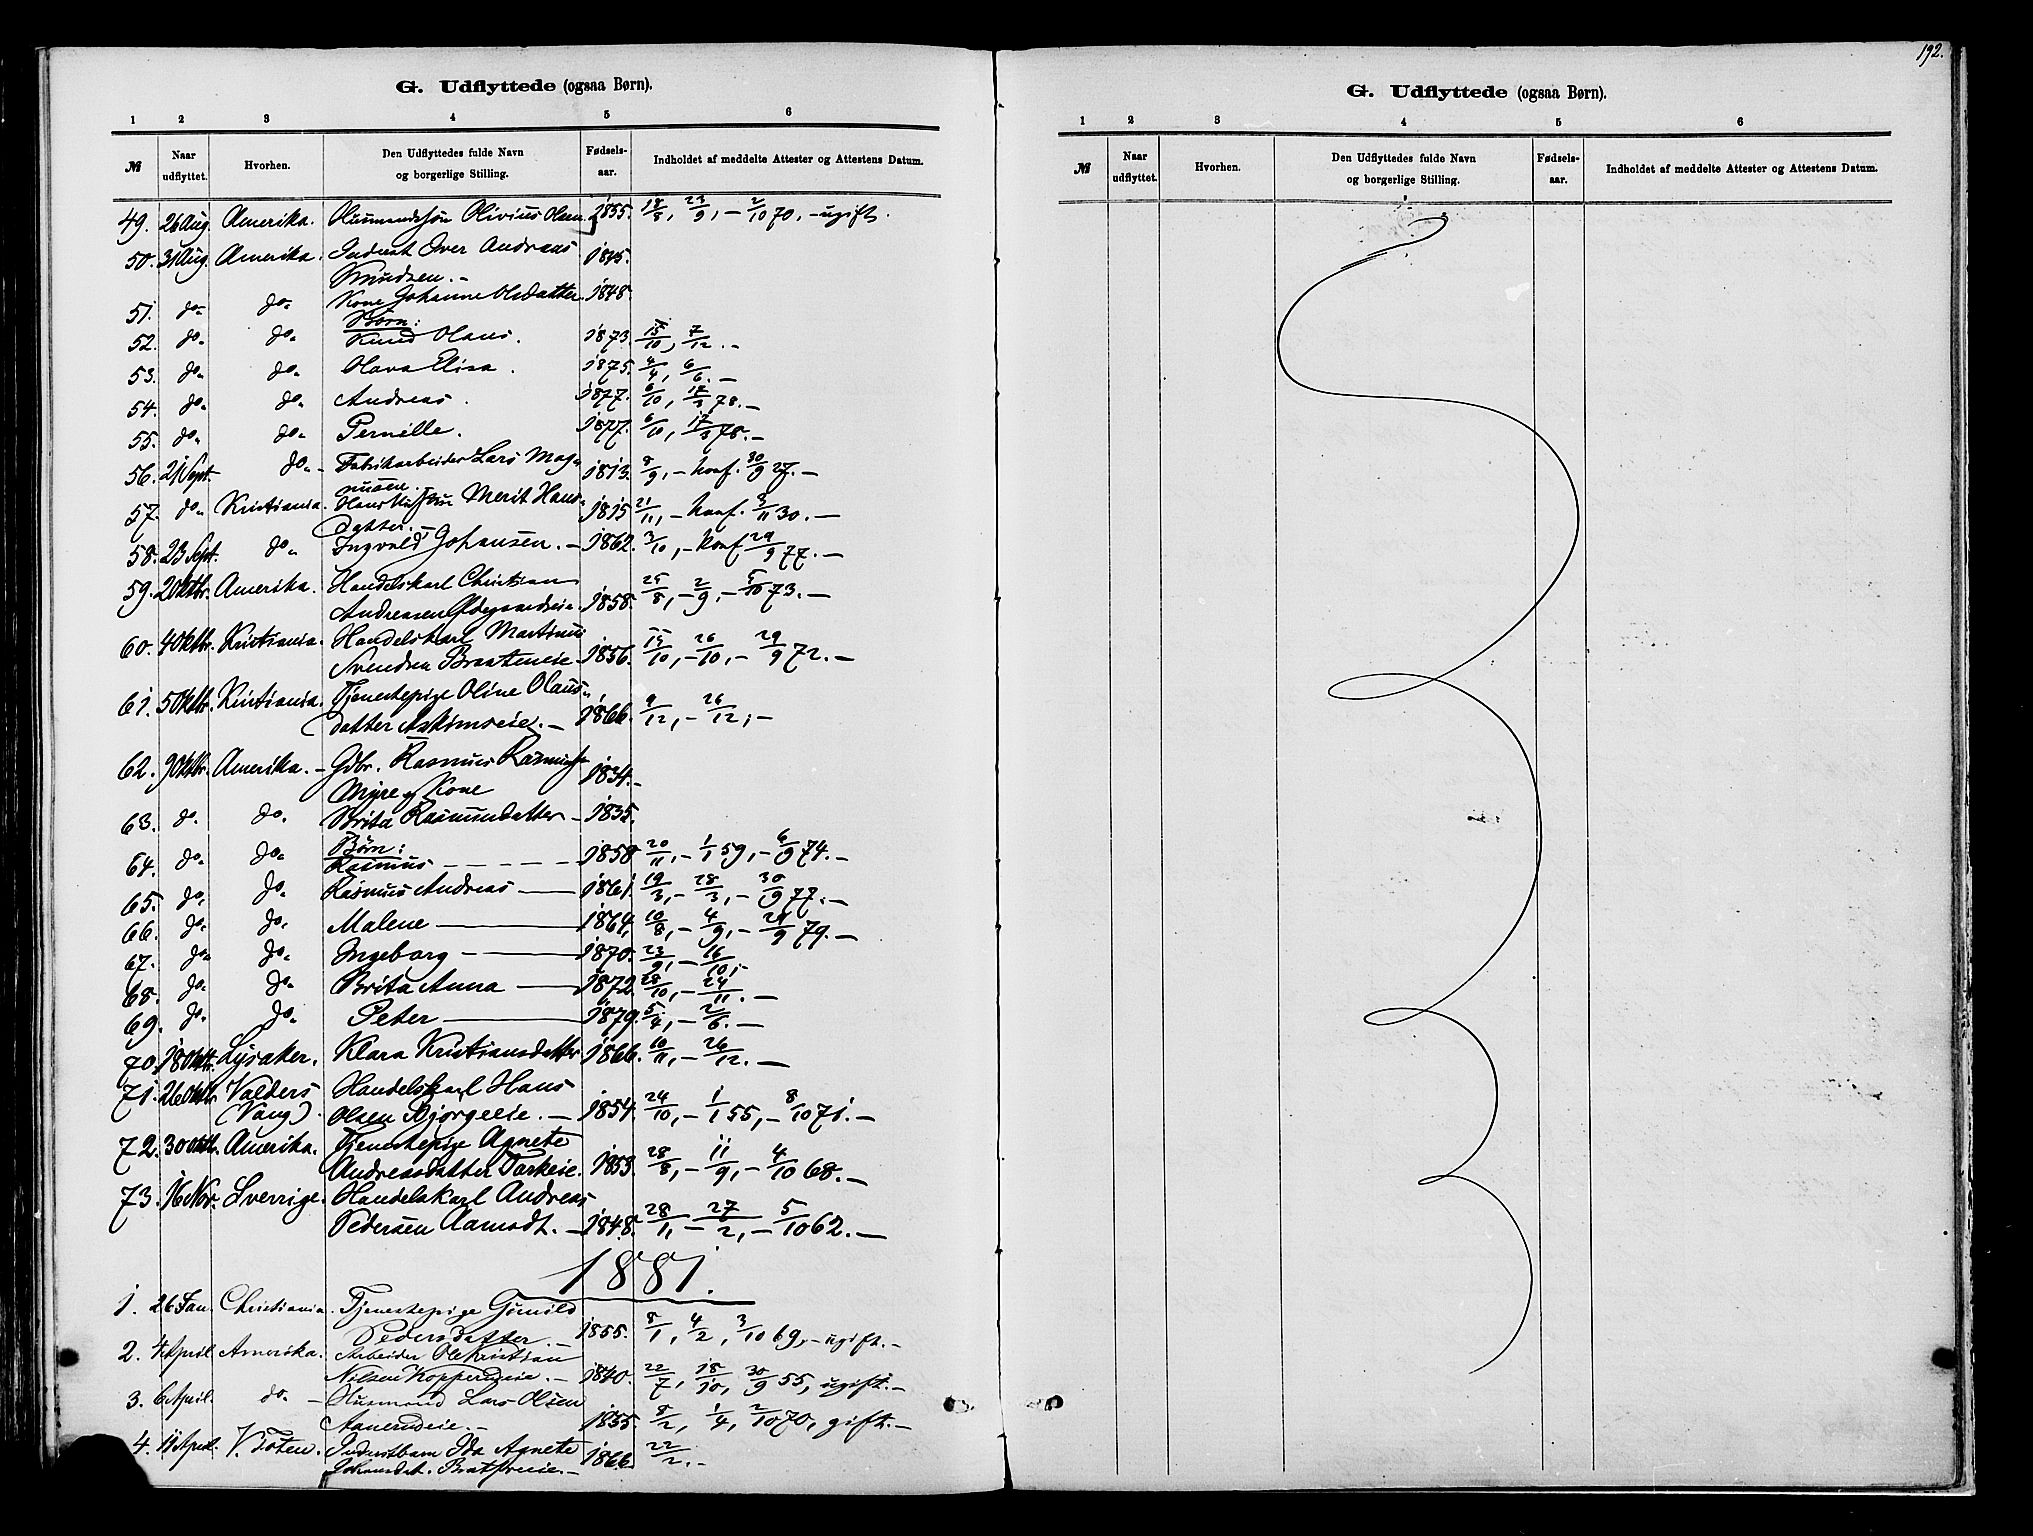 192.
G. Udflyttede (ogsaa Børn).
1 2 3 4 5 6
№ Naar udflyttet. Hvorhen. Den Udflyttedes fulde Navn og borgerlige Stilling. Fødsels-aar. Indholdet af meddelte Attester og Attestens Datum.
49. 26 Aug. Amerika. Husmandssøn Olivius Olsen 1855. 18/8, 23/9, – 2/10 70, – ugift.
50. 31 Aug. Amerika. Inderst Iver Andreas 1845.
Knudsen. –
51. do. do. Kone Johanne Olsdatter 1848.
Børn:
52. do. do. Knud Olaus. 1873. 15/10, 7/12. –
53. do. do. Olava Elisa. 1875. 4/4, 6/6. –
54. do. do. Andreas. 1877. 6/10, 17/3 78. –
55. do. do. Pernille. 1877. 6/10, 17/3 78. –
56. 21 Sept. do. – Fabrikarbeider Lars Mag-
nussen. 1813. 8/9, – konf. 30/9 27. –
57. do. Kristiania. Hans Hustru Merit Hans-
datter. – 1815. 21/11, – konf. 3/11 30. –
58. 23 Sept. do. Ingvald Johansen. – 1862. 3/10, – konf. 29/9 77. –
59. 2 Oktbr. Amerika. Handelskarl Christian
Andreasen Ødegaardseie. 1858. 25/8, – 2/9, – 5/10 73. –
60. 4 Oktbr. Kristiania. Handelskarl Martinus
Svendsen Braateneie. 1856. 15/10, – 26/10, – 29/9 72. –
61. 5 Oktbr. Kristiania. Tjenestepige Oline Olaus-
datter Askimseie. – 1866. 9/12, – 26/12, –
62. 9 Oktbr. Amerika. – Gdbr. Rasmus Rasmussen 1834. –
Myre og Kone
63. do. do. Brita Rasmusdatter – 1835.
Børn:
64. do. do. Rasmus – – – – – 1858. 20/11, – 1/1 59, – 6/9 74. –
65. do. do. Rasmus Andreas – 1861. 19/3, – 28/3, – 30/9 77. –
66. do. do. Malene – 1864. 10/8, – 4/9, – 29/9 79. –
67. do. do. Ingeborg – 1870. 23/9, – 16/10, –
68. do. do. Brita Anna – 1872. 28/10, – 24/11. –
69. do. do. Peter – 1879. 5/4, – 2/6. –
70. 18 Oktbr. Lysaker. Klara Kristiansdatter 1866. 10/11, – 26/12. –
71. 26 Oktbr. Valders Handelskarl Hans
(Vang). Olsen Bjørgeeie. – 1854. 24/10, – 1/1 55, – 8/10 71. –
72. 30 Oktbr. Amerika. Tjenestepige Agnete
Andreasdatter 1853. 28/8, – 11/9, – 4/10 68. –
73. 16 Nov. Sverrige. Handelskarl Andreas
Pedersen Aamodt. – 1848. 28/1, – 27/2, – 5/10 62. –
1881.
1. 26 Jan. Christiania. Tjenestepige Gunild
Pedersdatter 1855. 8/1, 4/2, 3/10 69, – ugift. –
2. 4 April Amerika. Arbeider Ole Kristian
Nilsen Kopperudeie. – 1840. 22/7, 18/10, 30/9 55, ugift. –
3. 6 April. do. – Husmand Lars Olsen
Aanerudeie. – 1855. 8/2, 1/4, 2/10 70, gift. –
4. 11 April. V. Toten. Inderstbarn Ida Agnete
Johansdat. 1866. 22/2. –
G. Udflyttede (ogsaa Børn).
1 2 3 4 5 6
№ Naar udflyttet. Hvorhen. Den Udflyttedes fulde Navn og borgerlige Stilling. Fødsels-aar. Indholdet af meddelte Attester og Attestens Datum.